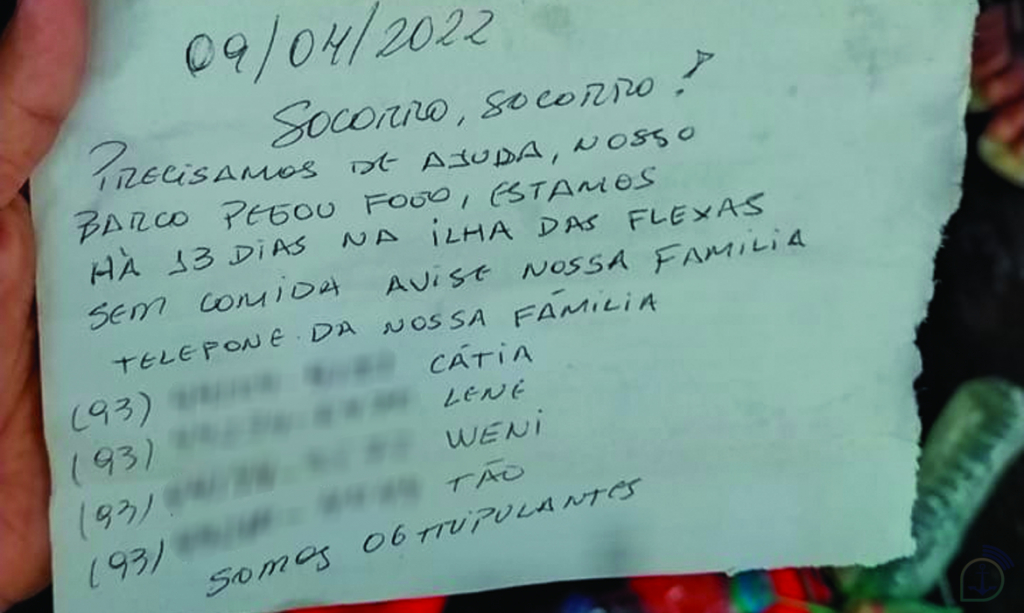 09/04/2022
SOCORRO, SOCORRO!
PRECISAMOS DE AJUDA, NOSSO
BARCO PEGOU FOGO, ESTAMOS
HÀ 13 DIAS NA ILHA DAS FLEXAS
SEM COMIDA AVISE NOSSA FAMILIA
TELEFONE DA NOSSA FAMILIA
(93) CÁTIA
(93) LENE
(93) WENI
(93) TÃO
SOMOS 06 TRIPULANTES